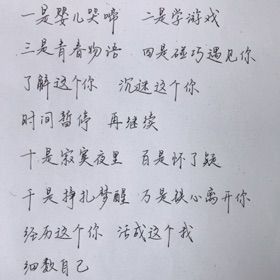 一是婴儿哭啼 二是学游戏
三是青春物语 四是碰巧遇见你
了解这个你 沉迷这个你
时间暂停 再继续
十是寂寞夜里 百是怀了疑
千是挣扎梦醒 万是铁心离开你
经历这个你 活成这个我
细数自己